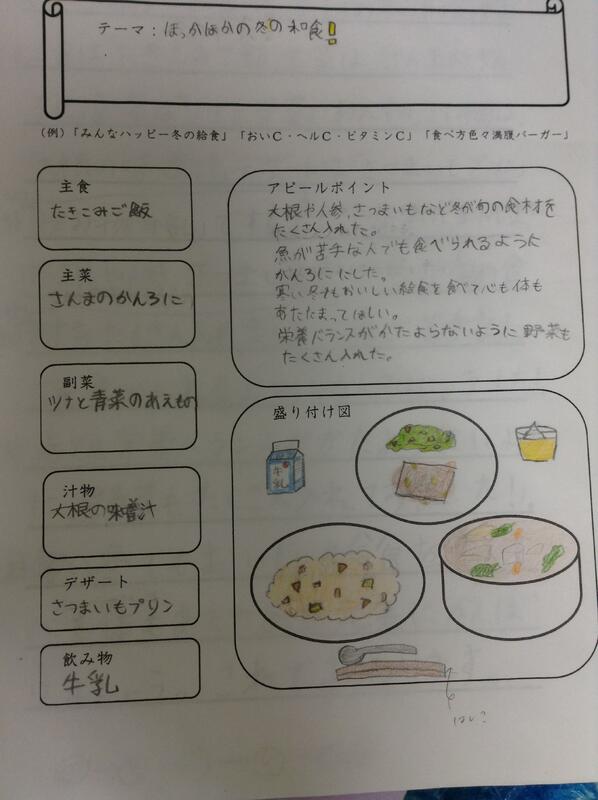 テーマ：ほっかほかの冬の和食!
（例）「みんなハッピー冬の給食」「おいC・ヘルC・ビタミンC」「食べ方色々満腹バーガー」
主食
たきこみご飯
主菜
さんまのかんろに
副菜
ツナと青菜のあえもの
汁物
大根の味噌汁
デザート
さつまいもプリン
飲み物
牛乳
アピールポイント
大根や人参、さつまいもなど冬が旬の食材を
たくさん入れた。
魚が苦手な人でも食べられるように
かんろににした。
寒い冬でもおいしい給食を食べて心も体も
あたたまってほしい。
栄養バランスがかたよらないように野菜も
たくさん入れた。
盛り付け図
牛乳
はし?